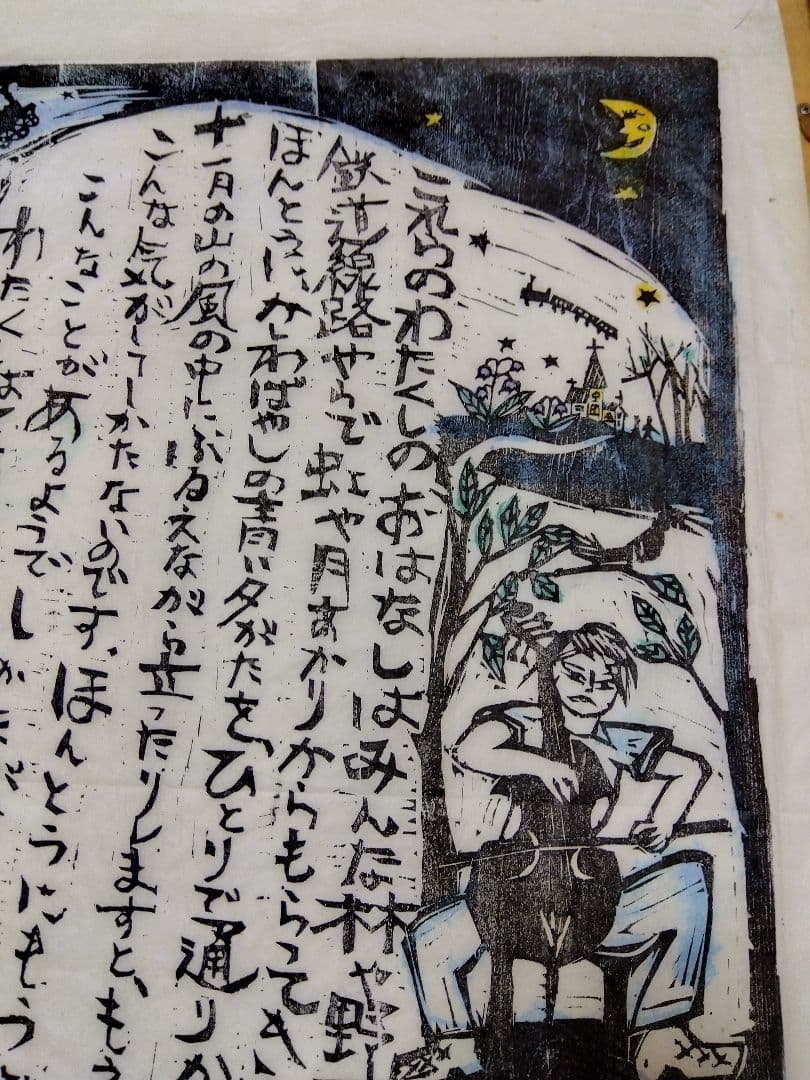 これらのわたくしのおはなしはみんな林や野
鉄道線路やらで虹や月あかりからもらってき
ほんとうに、かしわばやしの青い夕がたを、ひとりで通りか
十一月の山の風の中にふるえながら立ったりしますと、もう
こんな気がしてしかたないのです。ほんとうにもう
こんなことがあるようでしかた
わたくしは